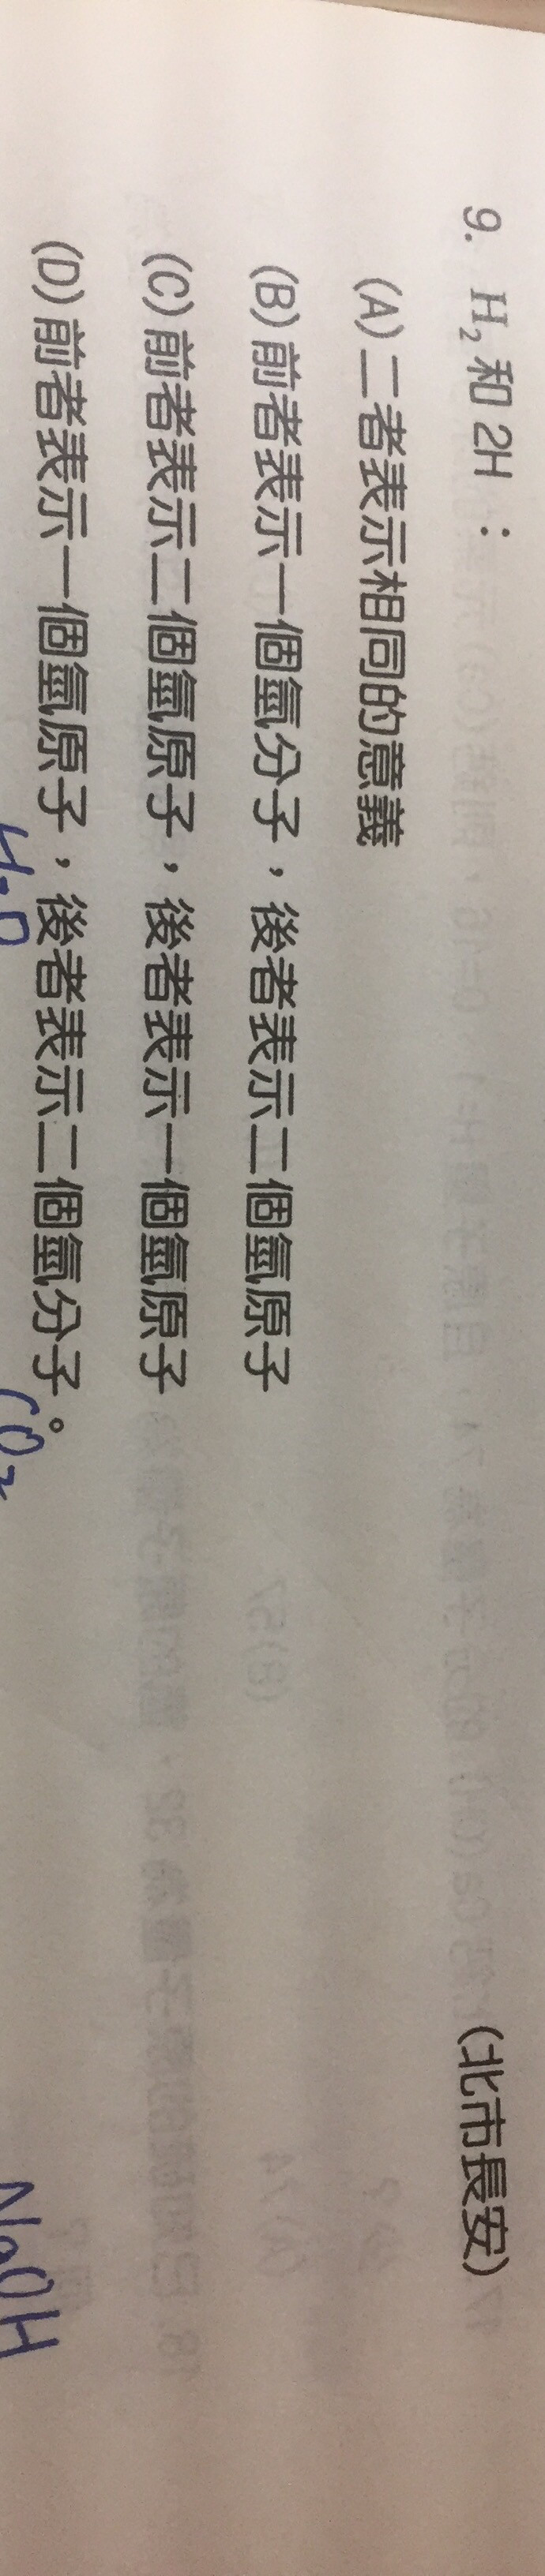 9. H₂和 2H： (北市長安)
(A)二者表示相同的意義
(B)前者表示一個氫分子，後者表示二個氫原子
(C)前者表示二個氫原子，後者表示一個氫原子
(D)前者表示一個氫原子，後者表示二個氫分子。
H₂O CO₂ NaOH